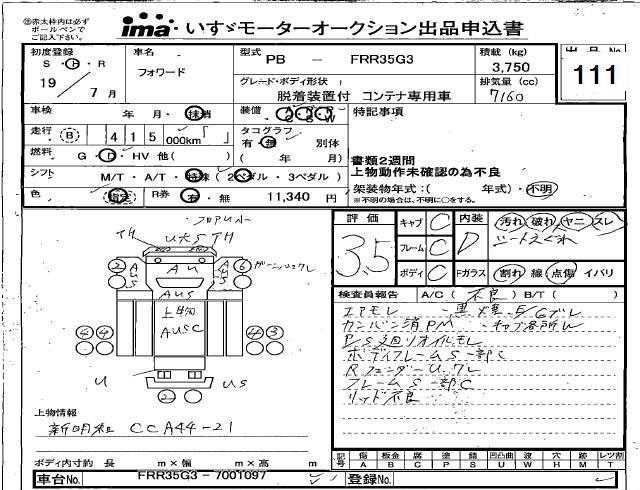 ㊟赤太枠内は必ず
ボールペンで
ご記入下さい。
ima いすゞモーターオークション出品申込書
初度登録
S・H・R
19 / 7 月
車名
フォワード
型式 PB - FRR35G3
積載 (kg)
3,750
出品No
111
グレード・ボディ形状
脱着装置付 コンテナ専用車
排気量 (cc)
7160
車検 年・月・抹消
装備
特記事項
走行 415 000km
タコグラフ
有・無 別体
( 年 月)
燃料 G・D・HV 他( )
書類2週間
上物動作未確認の為不良
シフト M/T・A/T・特殊 (2ペダル・3ペダル)
架装物年式:( 年式)・不明
※不明の場合は、不明に○をする。
色 指定 R券 有・無 11,340 円
評価 3.5
キャブ C
フレーム C
ボディ C
内装 D
Fガラス
汚れ・破れ・ヤニ・スレ
シートえぐれ
割れ・線・点傷・イバリ
検査員報告 A/C(不良) B/T( )
エアモレ
カンバン消PM
ボディフレームS一部C
RフェンダーU.ワレ
フレームS一部C
リッド不良
フロアUル
TH
UKSTH
2
AUS
AU
6
AUS
上物
AUSC
4 4
4 3
U
US
2
上物情報
新明和 CCA44-21
ボディ内寸約 長 m×幅 m×高 m
記号 傷A 板金B 腐C 塗P 錆S 凹凸曲U 波W 穴H 跡M レンズ割T
車台No. FRR35G3-7001097
登録No.